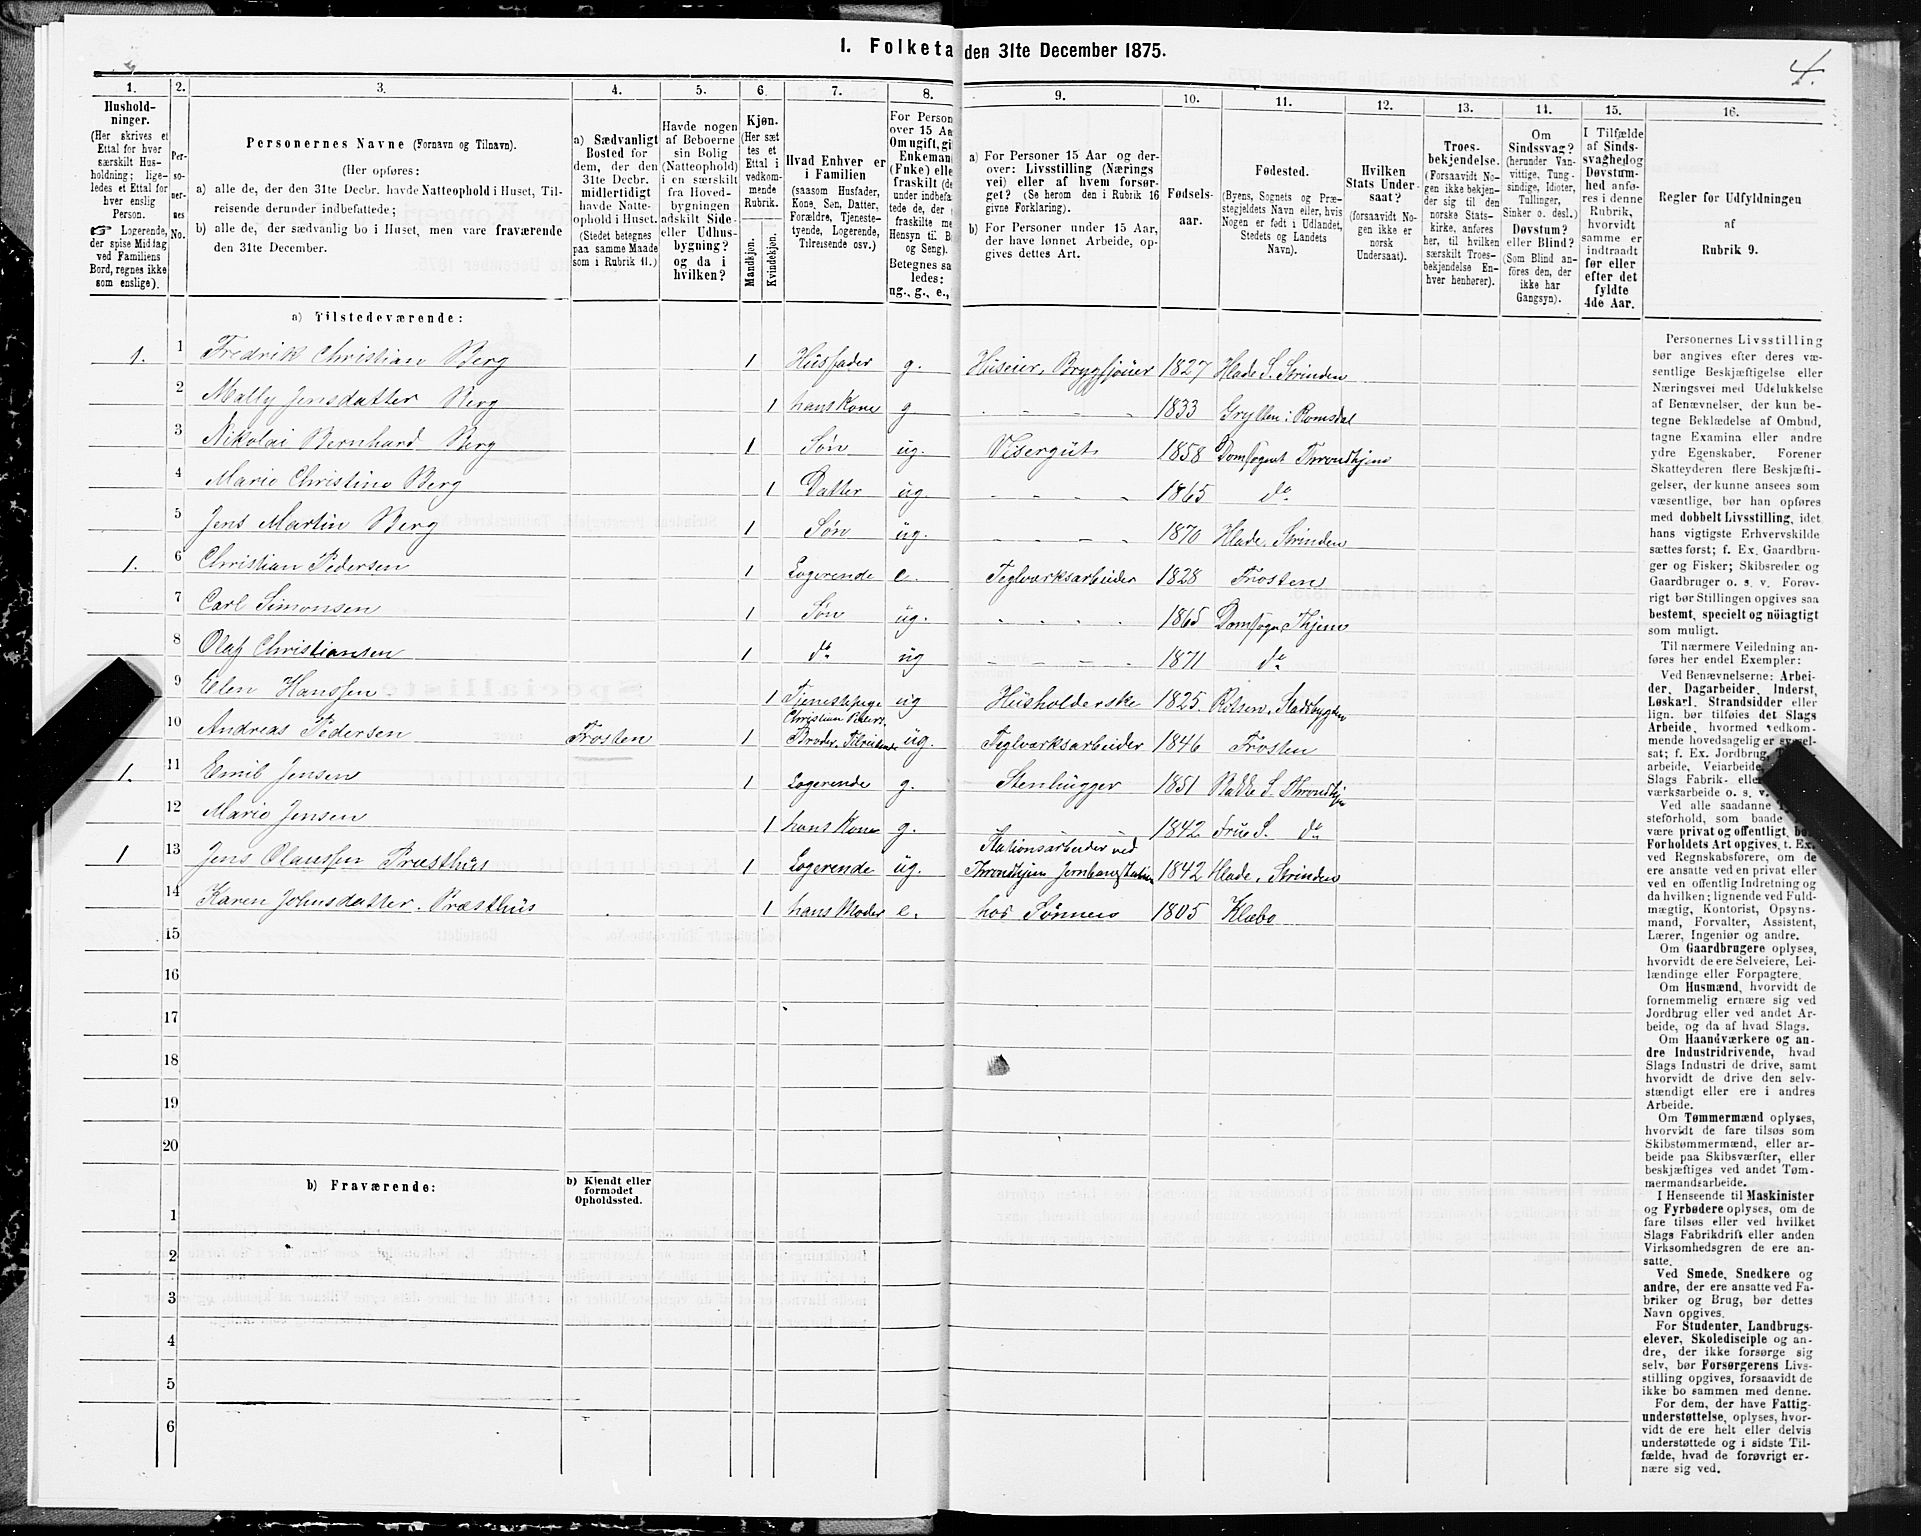 1. Folketa den 31te December 1875.
4.
1. 2. 3. 4. 5. 6. 7. 8. 9. 10. 11. 12. 13. 14. 15. 16.
Hushold-
ninger.
(Her skrives et
Ettal for hver
særskilt Hus-
holdning; lige-
ledes et Ettal for
hver enslig
Person.
☞ Logerende,
der spise Middag
ved Familiens
Bord, regnes ikke
som enslige).
Per-
so-
ner-
nes
No.
Personernes Navne (Fornavn og Tilnavn).
(Her opføres:
a) alle de, der den 31te Decbr. havde Natteophold i Huset, Til-
reisende derunder indbefattede;
b) alle de, der sædvanlig bo i Huset, men vare fraværende
den 31te December.
a) Sædvanligt
Bosted for
dem, der den
31te Decbr.
midlertidigt
havde Natte-
ophold i Huset.
(Stedet betegnes
paa samme Maade
som i Rubrik 11.)
Havde nogen
af Beboerne
sin Bolig
(Natteophold)
i en særskilt
fra Hoved-
bygningen
adskilt Side-
eller Udhus-
bygning?
og da i
hvilken?
Kjøn.
(Her sæt
tes et
Ettal i
vedkom-
mende
Rubrik.
Mandkjøn.
Kvindekjøn.
Hvad Enhver er
i Familien
(saasom Husfader,
Kone, Søn, Datter,
Forældre, Tjeneste-
tyende, Logerende,
Tilreisende osv.)
For Person
over 15 Aa
Om ugift, gi
Enkeman
(Fnke) elle
fraskilt (de
under indbefa
tede de, der
fraskilte me
Hensyn til B
og Seng).
Betegnes sa
ledes:
ug., g., e.,
a) For Personer 15 Aar og der-
over: Livsstilling (Nærings
vei) eller af hvem forsør-
get? (Se herom den i Rubrik 16
givne Forklaring).
b) For Personer under 15 Aar,
der have lønnet Arbeide, op-
gives dettes Art.
Fødsels-
aar.
Fødested.
(Byens, Sognets og Præ-
stegjeldets Navn eller, hvis
Nogen er født i Udlandet,
Stedets og Landets
Navn).
Hvilken
Stats Under-
saat?
(forsaavidt No-
gen ikke er
norsk
Undersaat).
Troes-
bekjendelse.
(Forsaavidt No-
gen ikke bekjen-
der sig til den
norske Stats-
kirke, anføres
her, til hvilken
særskilt Troes-
bekjendelse En-
hver henhører).
Om
Sindssvag?
(herunder Van-
vittige, Tung-
sindige, Idioter,
Tullinger,
Sinker o. desl.)
Døvstum?
eller Blind?
(Som Blind an-
føres den, der
ikke har
Gangsyn).
I Tilfælde
af Sinds-
svaghedog
Døvstum-
hed anfø-
res i denne
Rubrik,
hvorvidt
samme er
indtraadt
før eller
efter det
fyldte
4de Aar.
Regler for Udfyldningen
af
Rubrik 9.
a) Tilstedeværende:
1. 1 Fredrik Christian Berg 1 Husfader g. Huseier, Bryggsjouer 1827 Hlade S. Strinden
2 Mally Jensdatter Berg 1 hans Kone g 1833 Grytten i Romsdal
3 Nikolai Bernhard Berg 1 Søn ug. Visergut 1858 Domsognet Throndhjem
4 Marie Christine Berg 1 Datter ug. 1865 do
5 Jens Martin Berg 1 Søn ug. 1870 Hlade, Strinden
1. 6 Christian Pedersen 1 Logerende e. Teglværksarbeider 1828 Frosten
7 Carl Simonsen 1 Søn ug. 1865 Domsogn Thjem
8 Olaf Christiansen 1 do ug 1871 do
9 Elen Hanssen 1 Tjenestepige ug Husholderske 1825 Ritsen, Stadsbygden
10 Andreas Pedersen Frosten 1 Christian Peders. Broder, Tilreisende ug. Teglværksarbeider 1846 Frosten
1. 11 Emil Jensen 1 Logerende g. Stenhugger 1851 Bakke S. Throndhjem
12 Marie Jensen 1 hans Kone g. 1842 Frue S. do
1 13 Jens Olaussen Præsthus 1 Logerende ug. Stationsarbeider ved Throndhjem Jernbanestation 1842 Hlade, Strinden
14 Karen Johnsdatter Præsthus 1 hans Moder e. hos Sønnen 1805 Klæbo
15
16
17
18
19
20
b) Fraværende:
b) Kjendt eller
formodet
Opholdssted.
1
2
3
4
5
6
Personernes Livsstilling
bør angives efter deres væ-
sentlige Beskjæftigelse eller
Næringsvei med Udelukkelse
af Benævnelser, der kun be-
tegne Beklædelse af Ombud,
tagne Examina eller andre
ydre Egenskaber. Forener
Skatteyderen flere Beskjæfti-
gelser, der kunne ansees som
væsentlige, bør han opføres
med dobbelt Livsstilling, idet
hans vigtigste Erhvervskilde
sættes først; f. Ex. Gaardbru-
ger og Fisker; Skibsreder og
Gaardbruger o. s. v. Forøv-
rigt bør Stillingen opgives saa
bestemt, specielt og nöiagtigt
som muligt.
Til nærmere Veiledning an-
føres her endel Exempler:
Ved Benævnelserne: Arbei-
der, Dagarbeider, Inderst,
Løskarl, Strandsidder eller
lign. bør tilføies det Slags
Arbeide, hvormed vedkom-
mende hovedsagelig er syssel-
sat; f. Ex. Jordbrug,
arbeide, Veiarbeide,
Slags Fabrik- elle
værksarbeide o. s. v.
Ved alle saadanne
steforhold, som baade
være privat og offentligt, bør
Forholdets Art opgives, t. Ex.
ved Regnskabsførere, om de
ere ansatte ved en privat eller
ved en offentlig Indretning og
da hvilken; lignende ved Fuld-
mægtig, Kontorist, Opsyns-
mand, Forvalter, Assistent,
Lærer, Ingeniør og andre.
Om Gaardbrugere oplyses,
hvorvidt de ere Selveiere, Lei-
lændinge eller Forpagtere.
Om Husmænd, hvorvidt de
fornemmelig ernære sig ved
Jordbrug eller ved andet Ar-
beide, og da af hvad Slags.
Om Haandværkere og an-
dre Industridrivende, hvad
Slags Industri de drive, samt
hvorvidt de drive den selv-
stændigt eller ere i andres
Arbeide.
Om Tømmermænd oplyses,
hvorvidt de fare tilsøs som
Skibstømmermænd, eller ar-
beide paa Skibsværfter, eller
beskjæftiges ved andet Tøm-
mermandsarbeide.
I Henseende til Maskinister
og Fyrbødere oplyses, om de
fare tilsøs eller ved hvilket
Slags Fabrikdrift eller anden
Virksomhedsgren de ere an-
satte.
Ved Smede, Snedkere og
andre, der ere ansatte ved Fa-
briker og Brug, bør dettes
Navn opgives.
For Studenter, Landbrugs-
elever, Skoledisciple og an-
dre, der ikke forsørge sig
selv, bør Forsørgerens Livs-
stilling opgives, forsaavidt de
ikke bo sammen med denne.
For dem, der have Fattig-
understøttelse, oplyses, hvor-
vidt de ere helt eller delvis
understøttede og i sidste Til-
fælde, hvad de forøvrigt er-
nære sig ved.